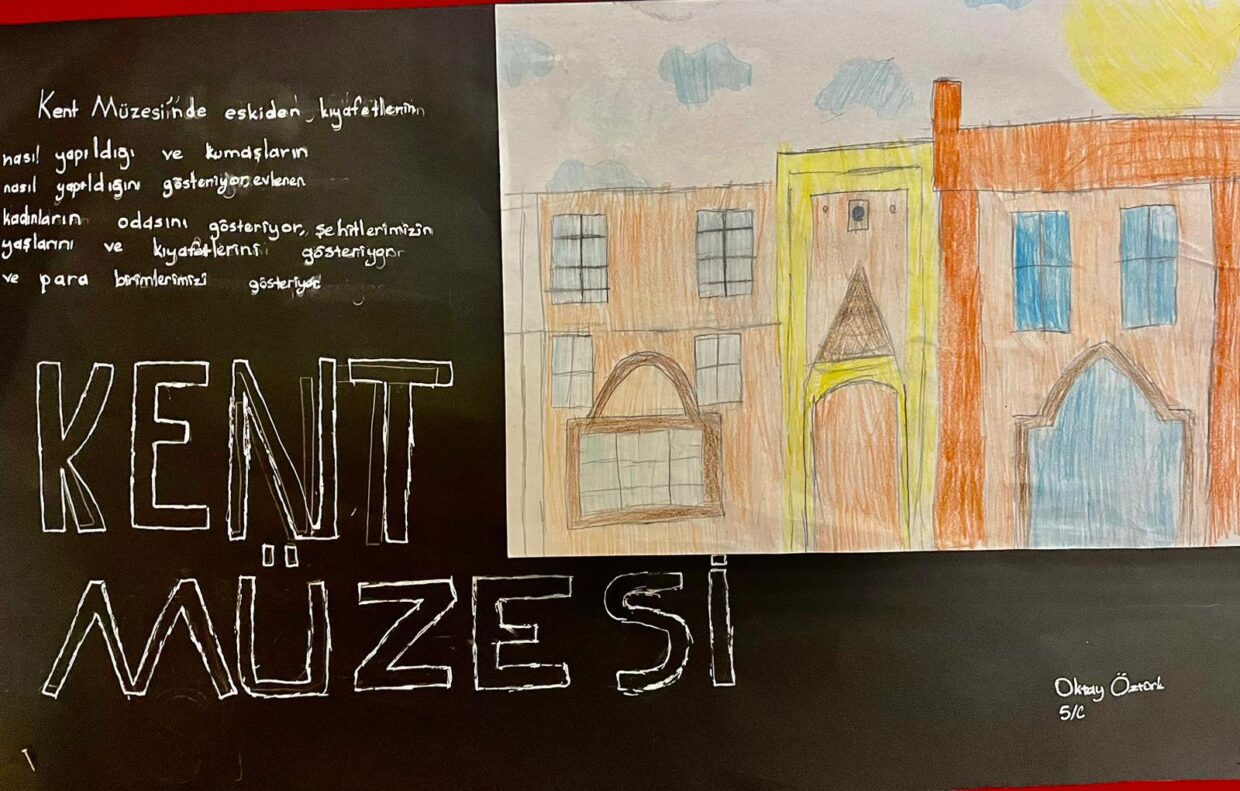 Kent Müzesi'nde eskiden kıyafetlerin
nasıl yapıldığı ve kumaşların
nasıl yapıldığını gösteriyor, evlenen
kadınların odasını gösteriyor, şehitlerimizin
yaşlarını ve kıyafetlerini gösteriyor
ve para birimlerimizi gösteriyor
KENT
MÜZESİ
Oktay Öztürk
5/C